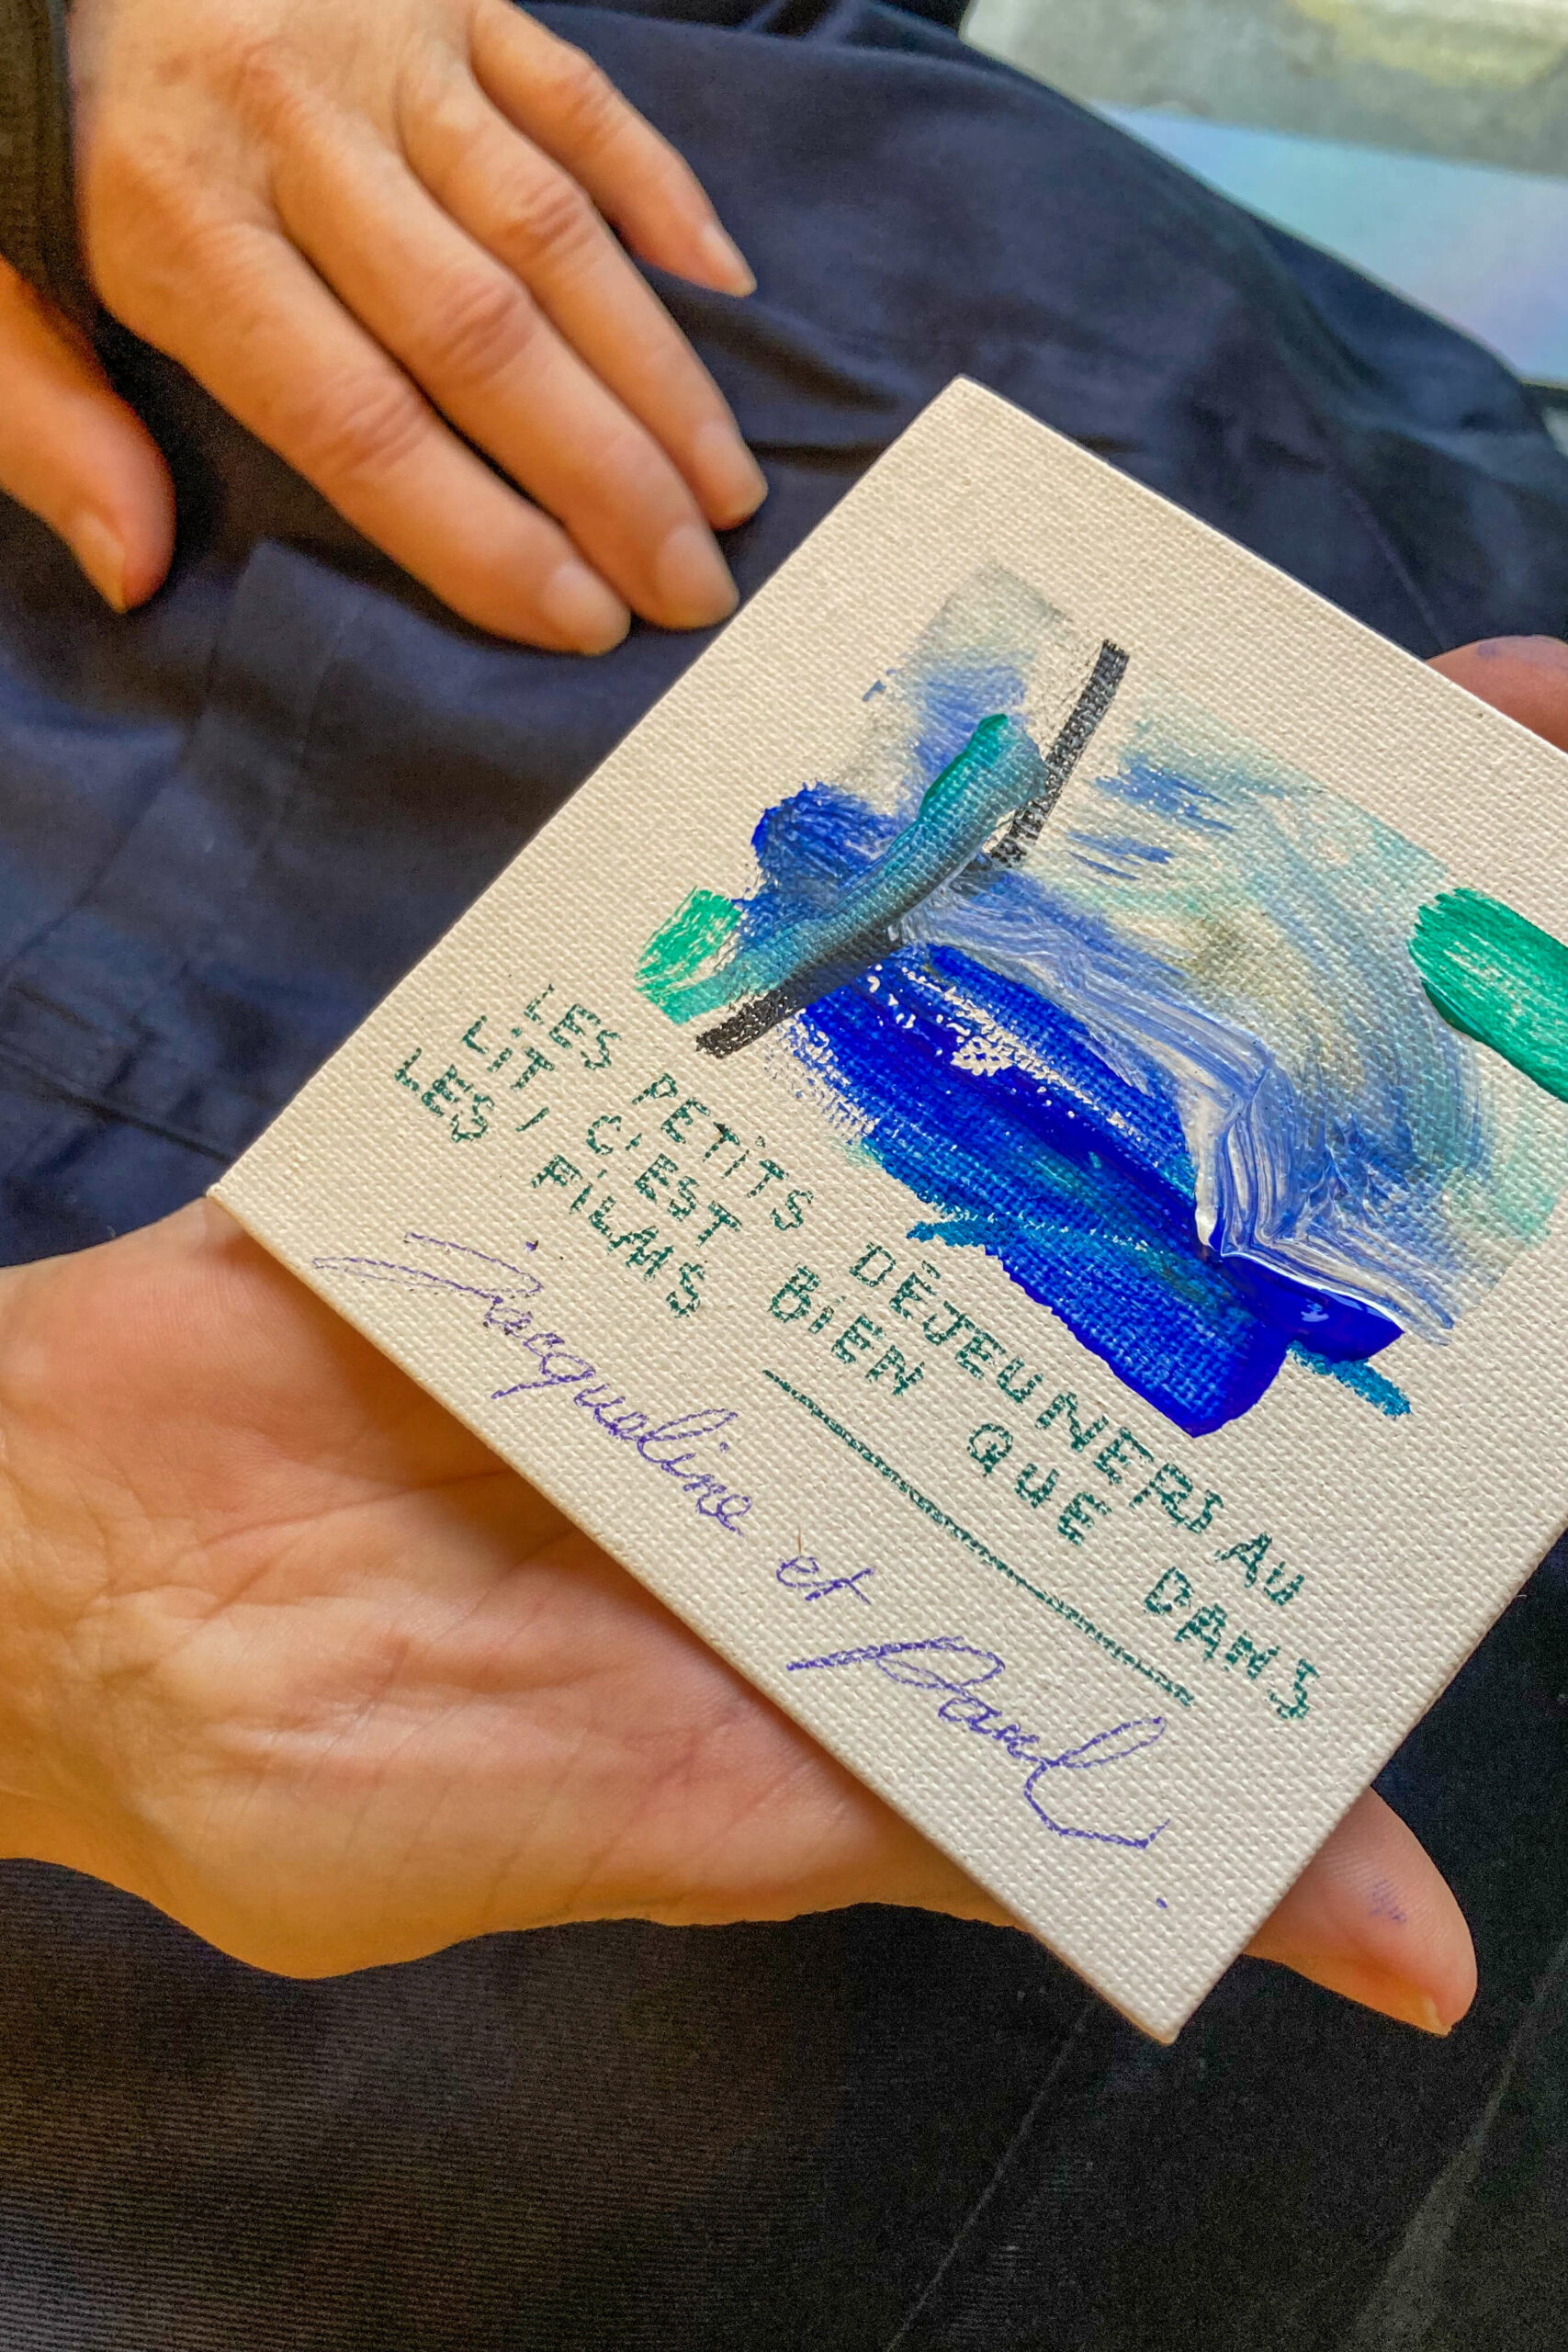 LES PETITS DÉJEUNERS AU
LIT, C'EST BIEN QUE DANS
LES FILMS
Jacqueline et Paul